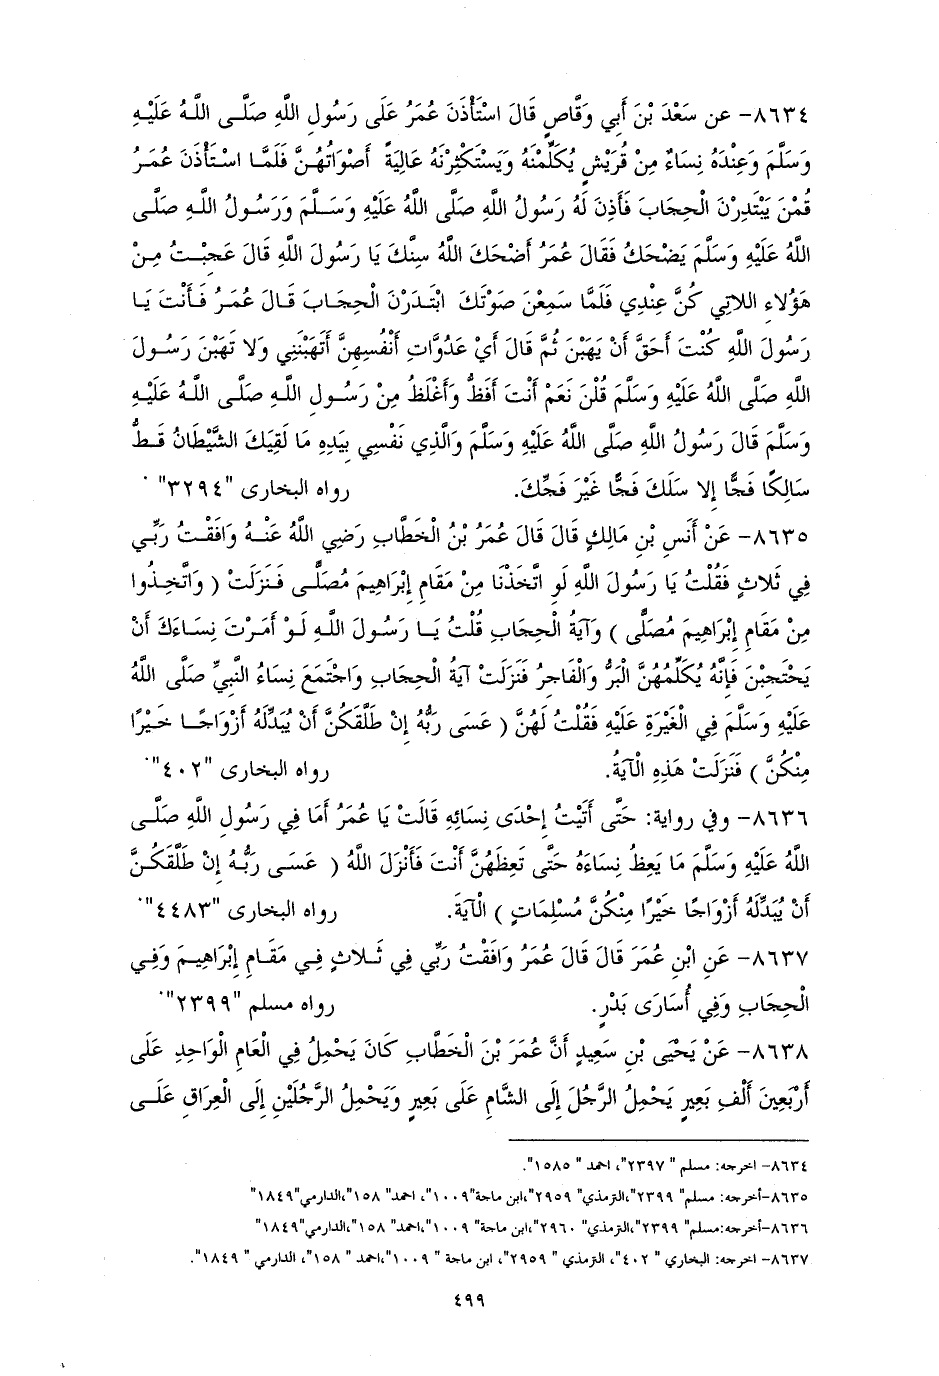 ٨٦٣٤- عن سَعْدَ بْنَ أَبِي وَقَّاصٍ قَالَ اسْتَأْذَنَ عُمَرُ عَلَى رَسُولِ اللَّهِ صَلَّى اللَّهُ عَلَيْهِ
وَسَلَّمَ وَعِنْدَهُ نِسَاءٌ مِنْ قُرَيْشٍ يُكَلِّمْنَهُ وَيَسْتَكْثِرْنَهُ عَالِيَةً أَصْوَاتُهُنَّ فَلَمَّا اسْتَأْذَنَ عُمَرُ
قُمْنَ يَبْتَدِرْنَ الْحِجَابَ فَأَذِنَ لَهُ رَسُولُ اللَّهِ صَلَّى اللَّهُ عَلَيْهِ وَسَلَّمَ وَرَسُولُ اللَّهِ صَلَّى
اللَّهُ عَلَيْهِ وَسَلَّمَ يَضْحَكُ فَقَالَ عُمَرُ أَضْحَكَ اللَّهُ سِنَّكَ يَا رَسُولَ اللَّهِ قَالَ عَجِبْتُ مِنْ
هَؤُلَاءِ اللاتِي كُنَّ عِنْدِي فَلَمَّا سَمِعْنَ صَوْتَكَ ابْتَدَرْنَ الْحِجَابَ قَالَ عُمَرُ فَأَنْتَ يَا
رَسُولَ اللَّهِ كُنْتَ أَحَقَّ أَنْ يَهَبْنَ ثُمَّ قَالَ أَيْ عَدُوَّاتِ أَنْفُسِهِنَّ أَتَهَبْنَنِي وَلَا تَهَبْنَ رَسُولَ
اللَّهِ صَلَّى اللَّهُ عَلَيْهِ وَسَلَّمَ قُلْنَ نَعَمْ أَنْتَ أَفَظُّ وَأَغْلَظُ مِنْ رَسُولِ اللَّهِ صَلَّى اللَّهُ عَلَيْهِ
وَسَلَّمَ قَالَ رَسُولُ اللَّهِ صَلَّى اللَّهُ عَلَيْهِ وَسَلَّمَ وَالَّذِي نَفْسِي بِيَدِهِ مَا لَقِيَكَ الشَّيْطَانُ قَطُّ
سَالِكًا فَجًّا إِلا سَلَكَ فَجًّا غَيْرَ فَجِّكَ. رواه البخارى "٣٢٩٤"
٨٦٣٥- عَنْ أَنَسِ بْنِ مَالِكٍ قَالَ قَالَ عُمَرُ بْنُ الْخَطَّابِ رَضِيَ اللَّهُ عَنْهُ وَافَقْتُ رَبِّي
فِي ثَلَاثٍ فَقُلْتُ يَا رَسُولَ اللَّهِ لَوِ اتَّخَذْنَا مِنْ مَقَامِ إِبْرَاهِيمَ مُصَلًّى فَنَزَلَتْ ( وَاتَّخِذُوا
مِنْ مَقَامِ إِبْرَاهِيمَ مُصَلًّى ) وَآيَةُ الْحِجَابِ قُلْتُ يَا رَسُولَ اللَّهِ لَوْ أَمَرْتَ نِسَاءَكَ أَنْ
يَحْتَجِبْنَ فَإِنَّهُ يُكَلِّمُهُنَّ الْبَرُّ وَالْفَاجِرُ فَنَزَلَتْ آيَةُ الْحِجَابِ وَاجْتَمَعَ نِسَاءُ النَّبِيِّ صَلَّى اللَّهُ
عَلَيْهِ وَسَلَّمَ فِي الْغَيْرَةِ عَلَيْهِ فَقُلْتُ لَهُنَّ ( عَسَى رَبُّهُ إِنْ طَلَّقَكُنَّ أَنْ يُبَدِّلَهُ أَزْوَاجًا خَيْرًا
مِنْكُنَّ ) فَنَزَلَتْ هَذِهِ الْآيَةُ. رواه البخارى "٤٠٢"
٨٦٣٦- وفي رواية: حَتَّى أَتَيْتُ إِحْدَى نِسَائِهِ قَالَتْ يَا عُمَرُ أَمَا فِي رَسُولِ اللَّهِ صَلَّى
اللَّهُ عَلَيْهِ وَسَلَّمَ مَا يَعِظُ نِسَاءَهُ حَتَّى تَعِظَهُنَّ أَنْتَ فَأَنْزَلَ اللَّهُ ( عَسَى رَبُّهُ إِنْ طَلَّقَكُنَّ
أَنْ يُبَدِّلَهُ أَزْوَاجًا خَيْرًا مِنْكُنَّ مُسْلِمَاتٍ ) الْآيَةَ. رواه البخارى "٤٤٨٣"
٨٦٣٧- عَنِ ابْنِ عُمَرَ قَالَ قَالَ عُمَرُ وَافَقْتُ رَبِّي فِي ثَلَاثٍ فِي مَقَامِ إِبْرَاهِيمَ وَفِي
الْحِجَابِ وَفِي أُسَارَى بَدْرٍ. رواه مسلم "٢٣٩٩"
٨٦٣٨- عَنْ يَحْيَى بْنِ سَعِيدٍ أَنَّ عُمَرَ بْنَ الْخَطَّابِ كَانَ يَحْمِلُ فِي الْعَامِ الْوَاحِدِ عَلَى
أَرْبَعِينَ أَلْفِ بَعِيرٍ يَحْمِلُ الرَّجُلَ إِلَى الشَّامِ عَلَى بَعِيرٍ وَيَحْمِلُ الرَّجُلَيْنِ إِلَى الْعِرَاقِ عَلَى
٨٦٣٤- اخرجه: مسلم " ٢٣٩٧"، احمد " ١٥٨٥".
٨٦٣٥-أخرجه: مسلم" ٢٣٩٩"،الترمذي" ٢٩٥٩"،ابن ماجة"١٠٠٩"، احمد" ١٥٨"،الدارمي"١٨٤٩"
٨٦٣٦-أخرجه:مسلم" ٢٣٩٩"،الترمذي" ٢٩٦٠"،ابن ماجة" ١٠٠٩"،احمد" ١٥٨"،الدارمي"١٨٤٩"
٨٦٣٧- اخرجه: البخاري " ٤٠٢"، الترمذي " ٢٩٥٩"، ابن ماجة " ١٠٠٩"،احمد " ١٥٨"، الدارمي " ١٨٤٩".
٤٩٩